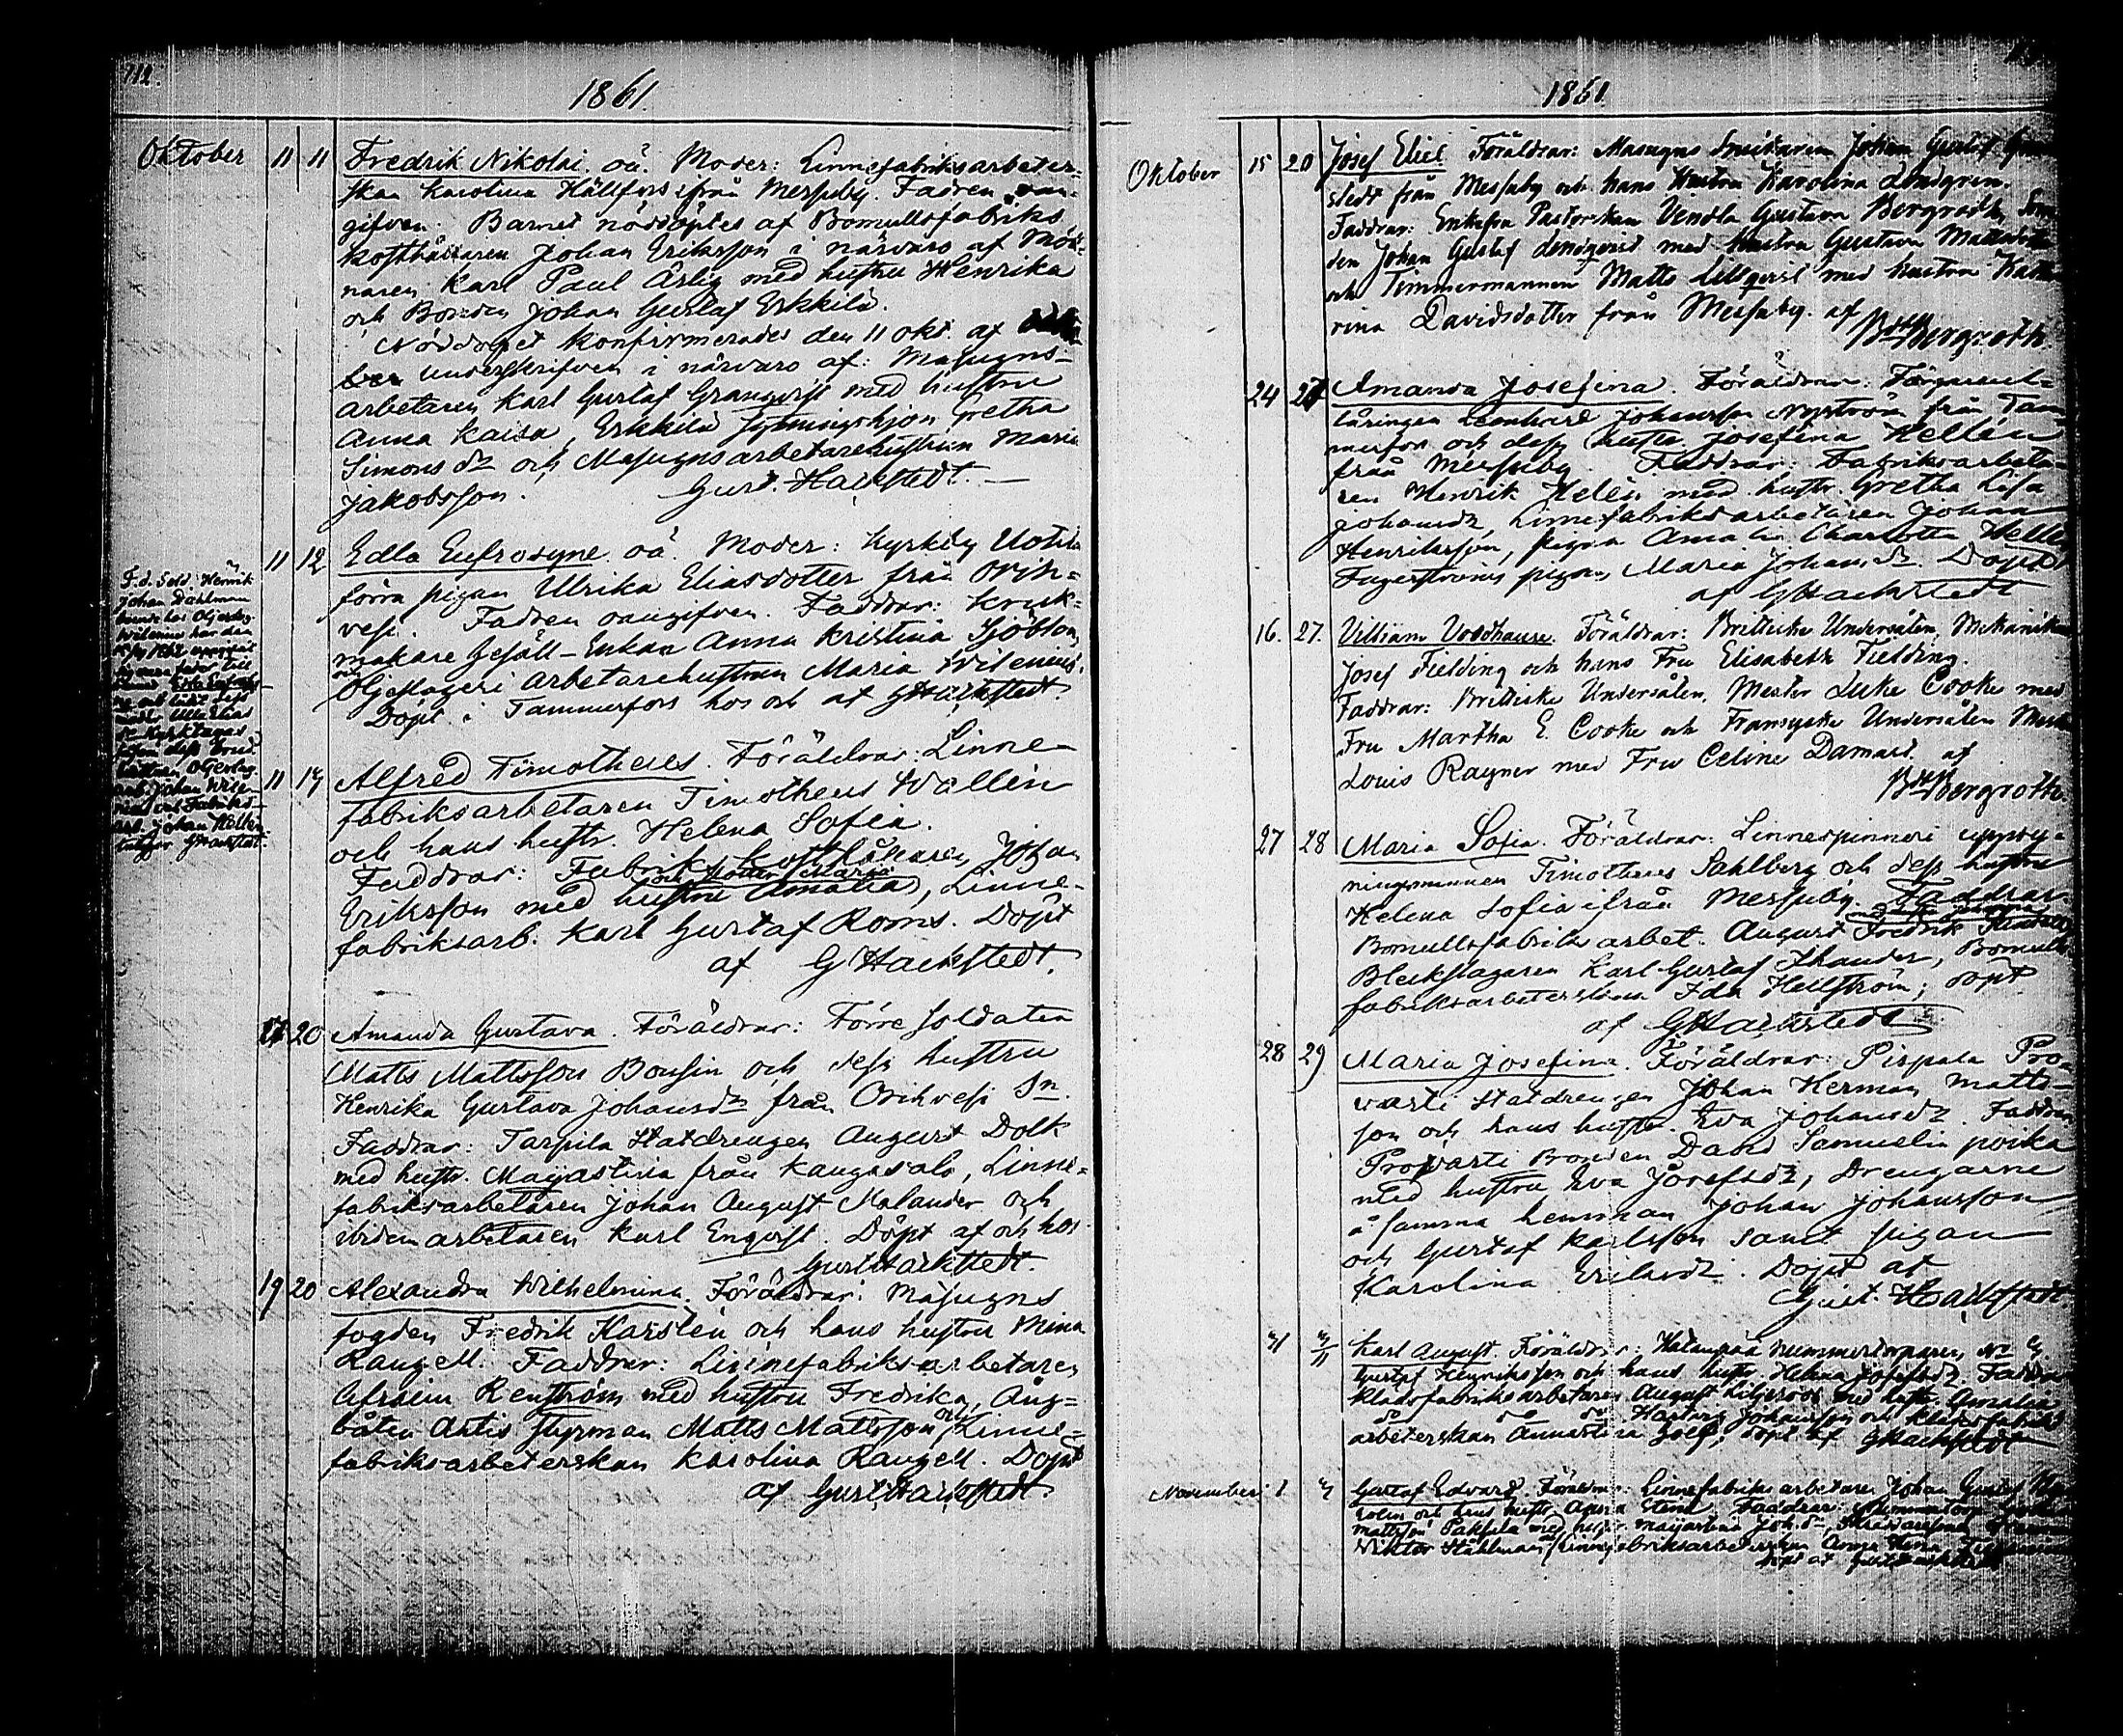 712.
1861
Oktober 11 11 Fredrik Nikolai. oä. Moder: Linnefabriksarbeter-
skan Karolina Hällfors ifrån Messuby. Fadren oan-
gifven. Barnet nöddöptes af Bomullsfabriks
kosthållaren Johan Eriksson i närvaro af Möl-
naren Karl Paul Ärlig med hustru Henrika
och Bonden Johan Gustaf Erkkilä.
Nöddopet konfirmerades den 11 okt. af
underskrifven i närvaro af: Masugns-
arbetaren Karl Gustaf Granqvist med hustru
Anna Kaisa, Erkkilä Sytningshjon Gretha
Simons dr och Masugnsarbetarehustrun Maria
Jakobsson. Gust. Hackstedt.
11 12 Edla Eufrosyne oä. Moder: Kyrkby Uotila
förra pigan Ulrika Eliasdotter från Orih-
vesi. Fadren oangifven. Faddrar: Kruk-
makare Gesäll-Enkan Anna Kristina Sjöblom
och Oljeslageri arbetarehustrun Maria Wilenius.
Döpt i Tammerfors hos och af GHackstedt.
F. d. Sold. Henrik
Johan Dahlman
boende hos Oljeslag.
Wilenius har den
1862 uppgifvit
sig vara fader till
barnet Edla Eufros-
Ulla Elias
dr Kyrktagas
såsom dess brud
Oljeslag.
arb. Johan Wile-
nius och Fabriks-
arb. Johan Hellén
intygar GHackstedt.
11 14 Alfred Timotheus. Föräldrar: Linne-
fabriksarbetaren Timotheus Wallén
och hans hustr. Helena Sofia.
Faddrar: Fabriks kosthållaren Johan
och dotter Maria
Eriksson med hustru Amalia, Linne-
fabriksarb. Karl Gustaf Roms. Döpt
af GHackstedt.
20 Amanda Gustava. Föräldrar: Förre soldaten
Matts Mattsson Bonsin och dess hustru
Henrika Gustava Johansdr från Orihvesi Sn.
Faddrar: Tarpila Statdrengen August Dolk
med hustr. Majastina från Kangasala, Linne-
fabriksarbetaren Johan August Malander och
ibidem arbetaren Karl Enqvist. Döpt af och hos
Gust Hackstedt.
19 20 Alexandra Wilhelmina. Föräldrar: Masugns
fogden Fredrik Karstén och hans hustru Mina
Rangell. Faddrar: Linnefabriksarbetaren
Efraim Renström med hustru Fredrika, Ång-
båten Ahtis Styrman Matts Mattsson och Linne-
fabriksarbeterskan Karolina Rangell. Döpt
af Gust. Hackstedt.
1861
Oktober 15 20 Josef Eliel. Föräldrar: Masugns Smidaren Johan Gustaf
stedt från Messuby och hans Hustru Karolina Lindgren.
Faddrar: Enkefru Pastorskan Vendla Gustava Bergroth,
den Johan Gustaf Lindqvist med Hustru Gustava
och Timmermannen Matts Lillqvist med hustru Katha
rina Davidsdotter från Messuby. af
BHBergroth
24 27 Amanda Josefina. Föräldrar:
läringen Leonhard Johansson Nyström från Tam-
merfors och dess hustr. Josefina Hellén
från Messuby. Faddrar: Fabriksarbeta-
ren Henrik Helén med hustr. Gretha Lisa
Johansdr, Linnefabriksarbetaren Johan
Henriksson, pigan Amalia Charlotta Hellén
pigan Maria Johansdr. Döpt
af GHackstedt
16. 27. William Voodhause. Föräldrar: Brittiske Undersåten, Mekanikern
Josef Fielding och hans Fru Elisabeth Fielding.
Faddrar: Brittiske Undersåten, Mester Luke Cooke med
Fru Martha E. Cooke och Fransyske Undersåten Mester
Louis Rayner med Fru Celine Damard. af
BHBergroth.
27 28 Maria Sofia. Föräldrar: Linnespinneri uppsy-
ningsmannen Timotheus Sahlberg och dess hustru
Helena Sofia ifrån Messuby. Faddrar
Bomullsfabriks arbet. August Fredrik
Bleckslagaren Karl Gustaf Thander, Bomulls-
fabriksarbeterskan Ida Hellström; döpt
af GHackstedt
28 29 Maria Josefina. Föräldrar: Pispala Pro-
varti Statdrengen Johan Herman Matts-
son och hans hustr. Eva Johansdr. Faddrar
Provarti Bonden David Samuelin poika
med hustru Eva Josefsdr, Drengarne
å samma hemman Johan Johansson
och Gustaf Karlsson samt pigan
Karolina Eriksdr. Döpt af
Gust. Hackstedt.
31 3/11 Karl August. Föräldrar: Hatanpää Nummertorparen No
Gustaf Henriksson och hans hustr. Helena Josefsdr. Faddrar
Klädsfabriksarbetaren August Liljeroos med hustr. Amalia
do do do Hartvig Johansson och klädsfabriks
arbeterskan Annastina Golf; döpt af GHackstedt
November 1 3 Gustaf Edvard. Föräldrar: Linnefabriks arbetaren Johan Gustaf
och hans hustr. Anna Stina. Faddrar:
Mattsson Pakkila med hustr. Majastina Joh.dr,
Wiktor Ståhlman, Linnefabriksarbeterskan Anna Lena
döpt af Gust Hackstedt